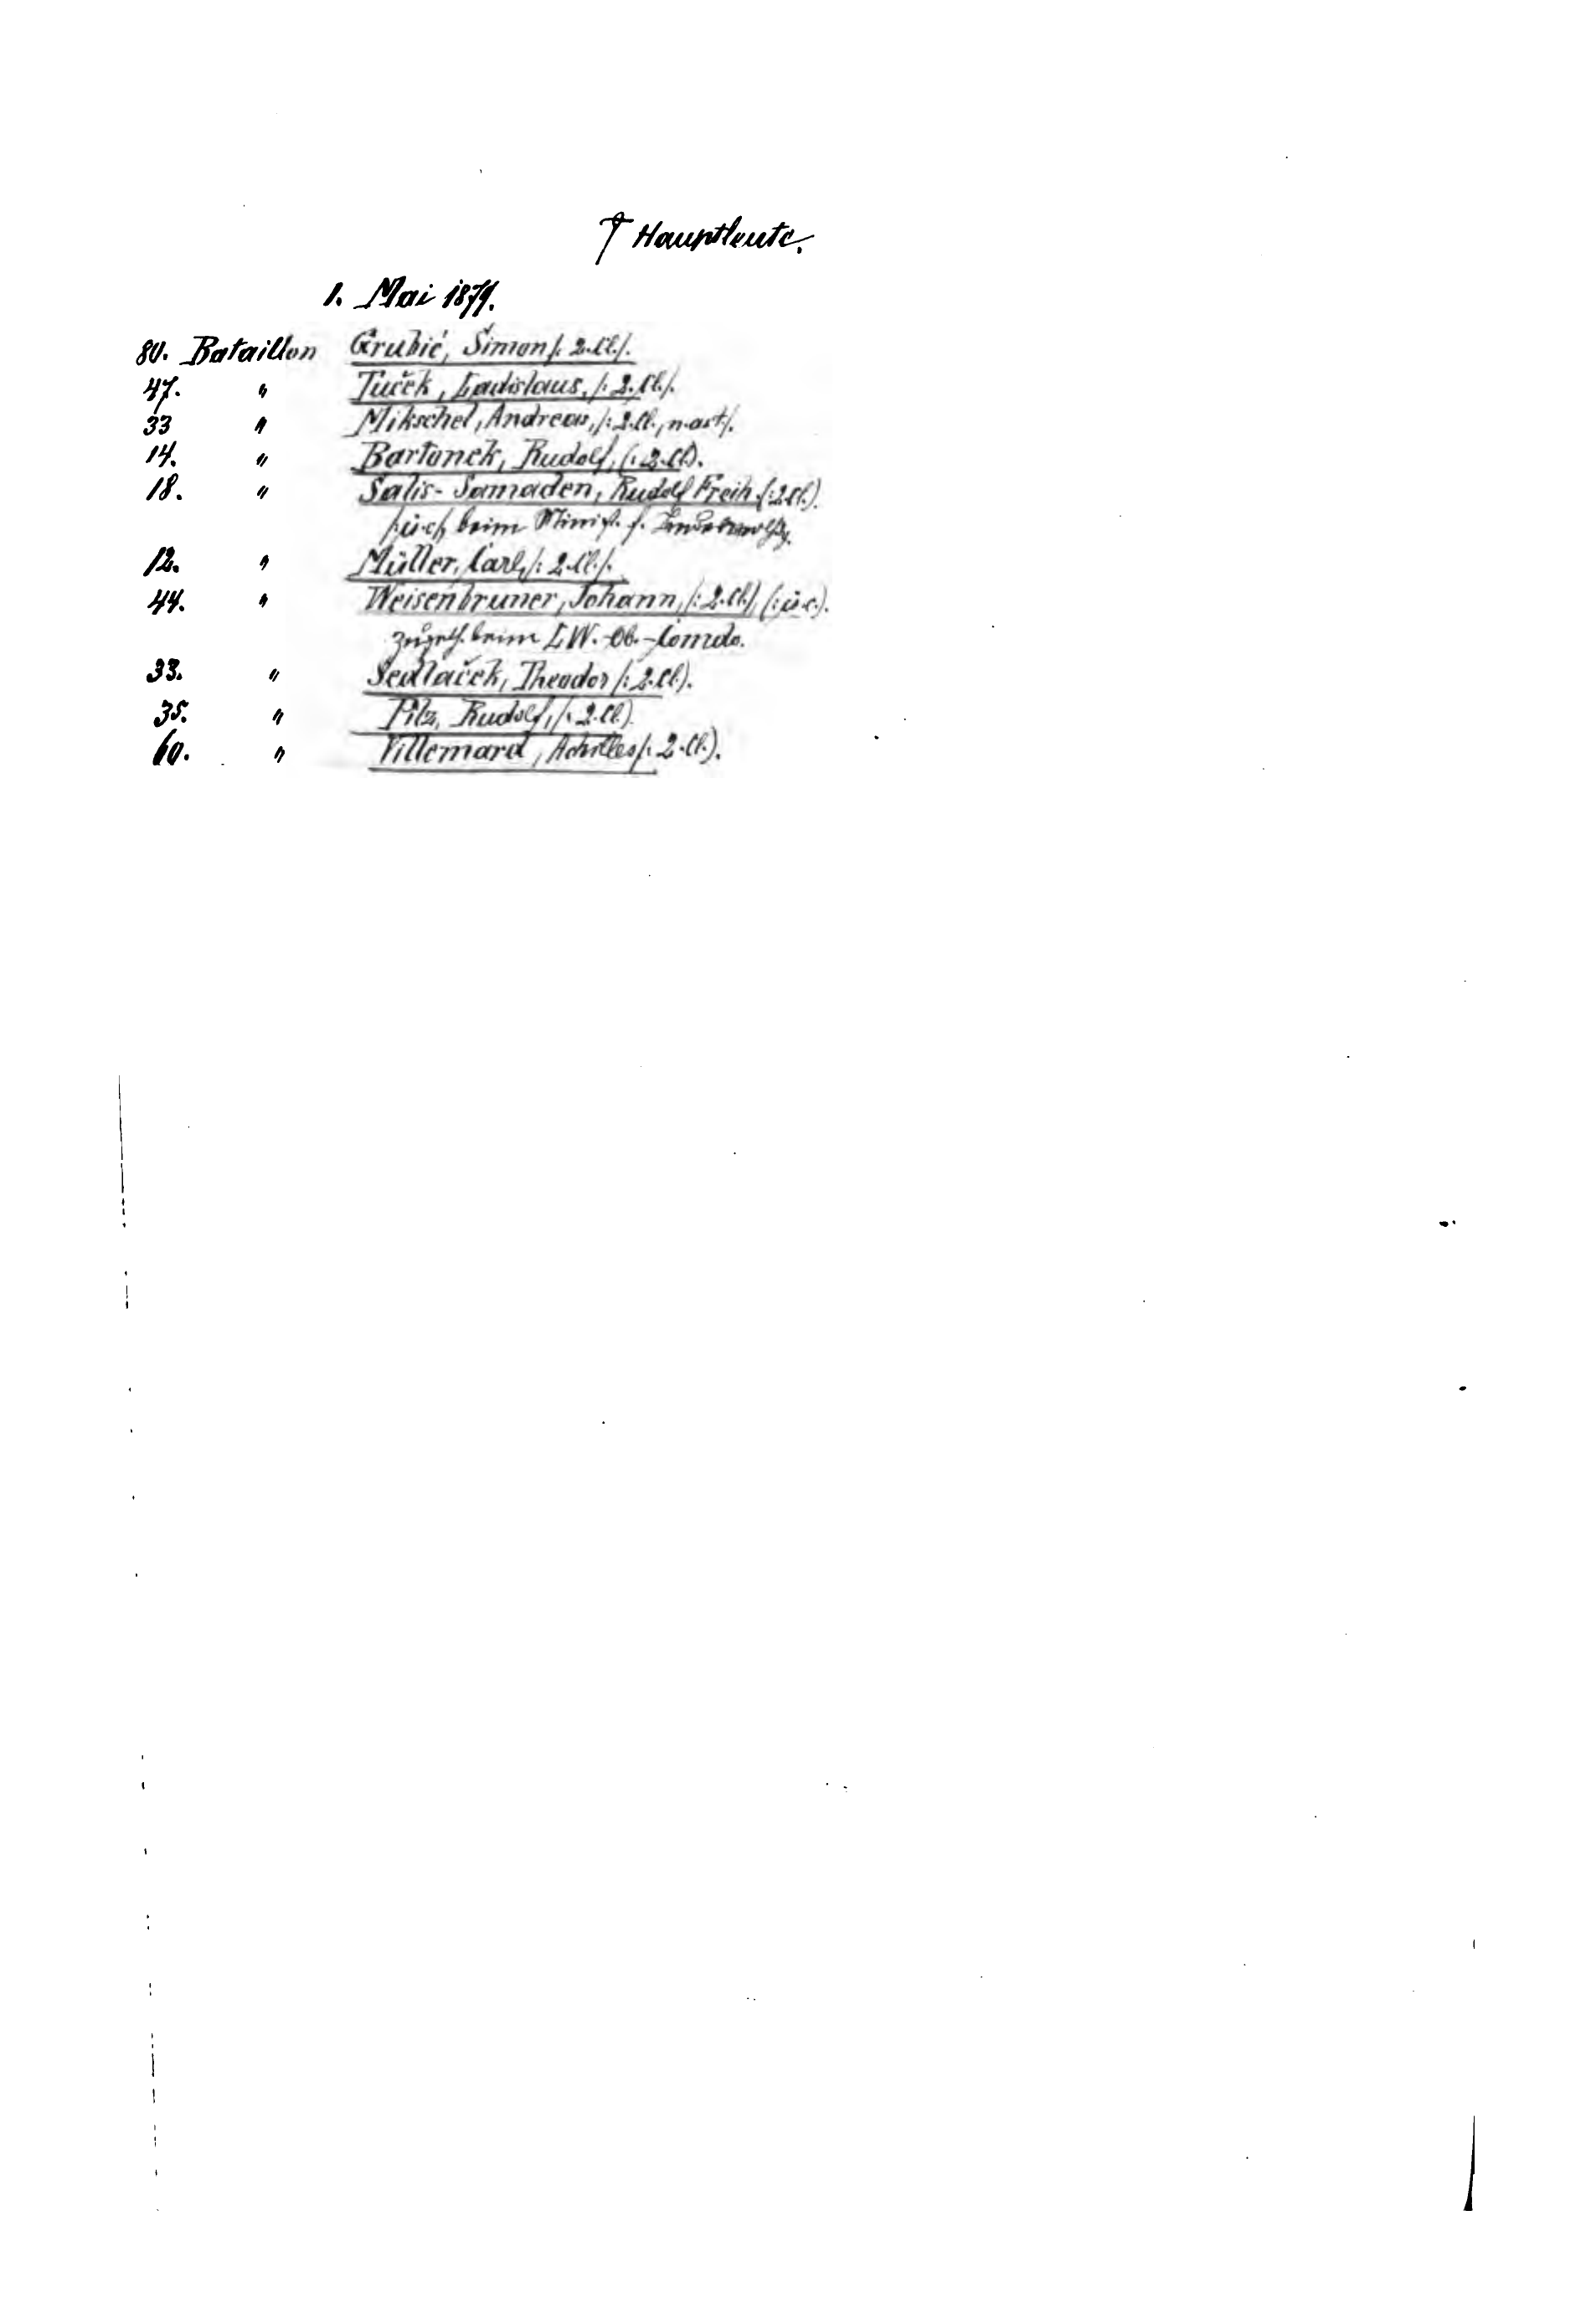 † Hauptleute.
1. Mai 1879.
80. Bataillon Grubić, Simon /: 2. Cl./.
47. " Tuček, Ladislaus, /: 2. Cl./.
33 " Mikschel, Andreas, /: 2. Cl., n. act/.
14. " Bartunek, Rudolf, (: 2. Cl).
18. " Salis-Samaden, Rudolf Freih. (: 2 Cl.).
beim Minist. f.
12. " Müller, Carl, /: 2. Cl./.
44. " Weisenbruner, Johann, /: 2. Cl.) (: ü. c.).
zugeth. beim LW.-Ob.-Comdo.
33. " Sedlaček, Theodor /: 2. Cl.).
35. " Pilz, Rudolf, /: 2. Cl.).
60. " Villemard, Achilles /: 2. Cl.).